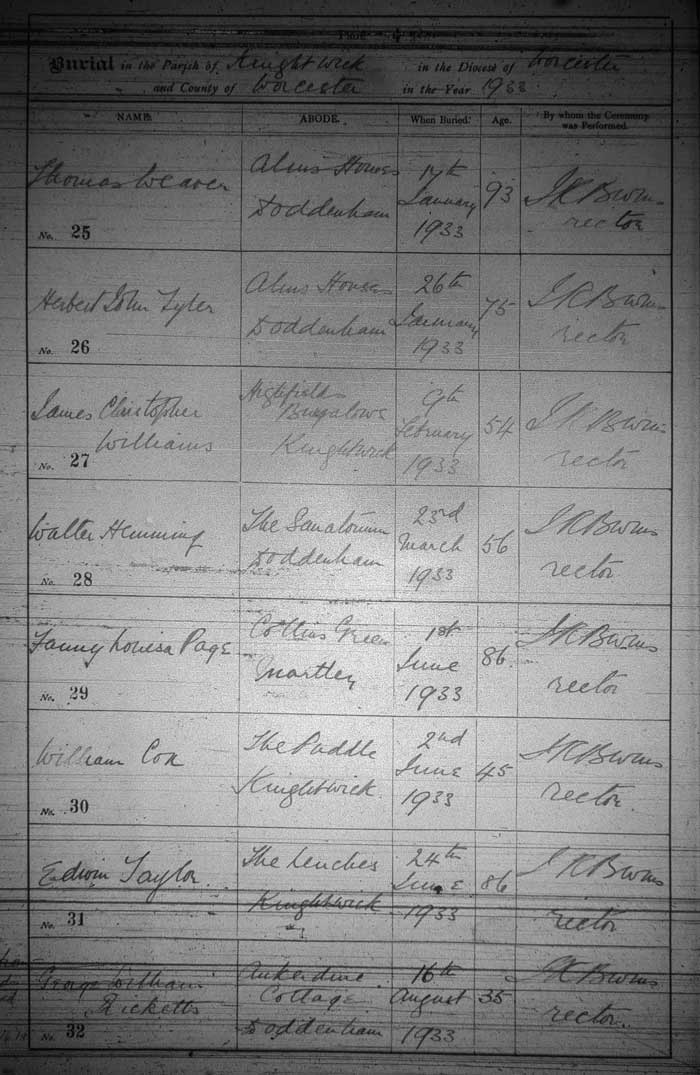 Page 4
Burial in the Parish of Knightwick in the Diocese of Worcester
and County of Worcester in the Year 1933
NAME. ABODE. When Buried. Age. By whom the Ceremony was Performed.
Thomas Weaver
No. 25
Alms Houses
Doddenham
17th
January
1933
93
rector
Herbert John Tyler
No. 26
Alms Houses
Doddenham
26th
January
1933
75
rector
James Christopher
Williams
No. 27
Highfields
Bungalows
Knightwick
9th
February
1933
54
rector
Walter Hemming
No. 28
The Sanatorium
Doddenham
23rd
March
1933
56
rector
Fanny Louisa Page
No. 29
Collins Green
Martley
1st
June
1933
86
rector
William Cox
No. 30
The Puddle
Knightwick
2nd
June
1933
45
rector
Edwin Taylor
No. 31
The Lenches
Knightwick
24th
June
1933
86
rector
George William
Ricketts
No. 32
Ankerdine
Cottage
Doddenham
16th
August
1933
35
rector.